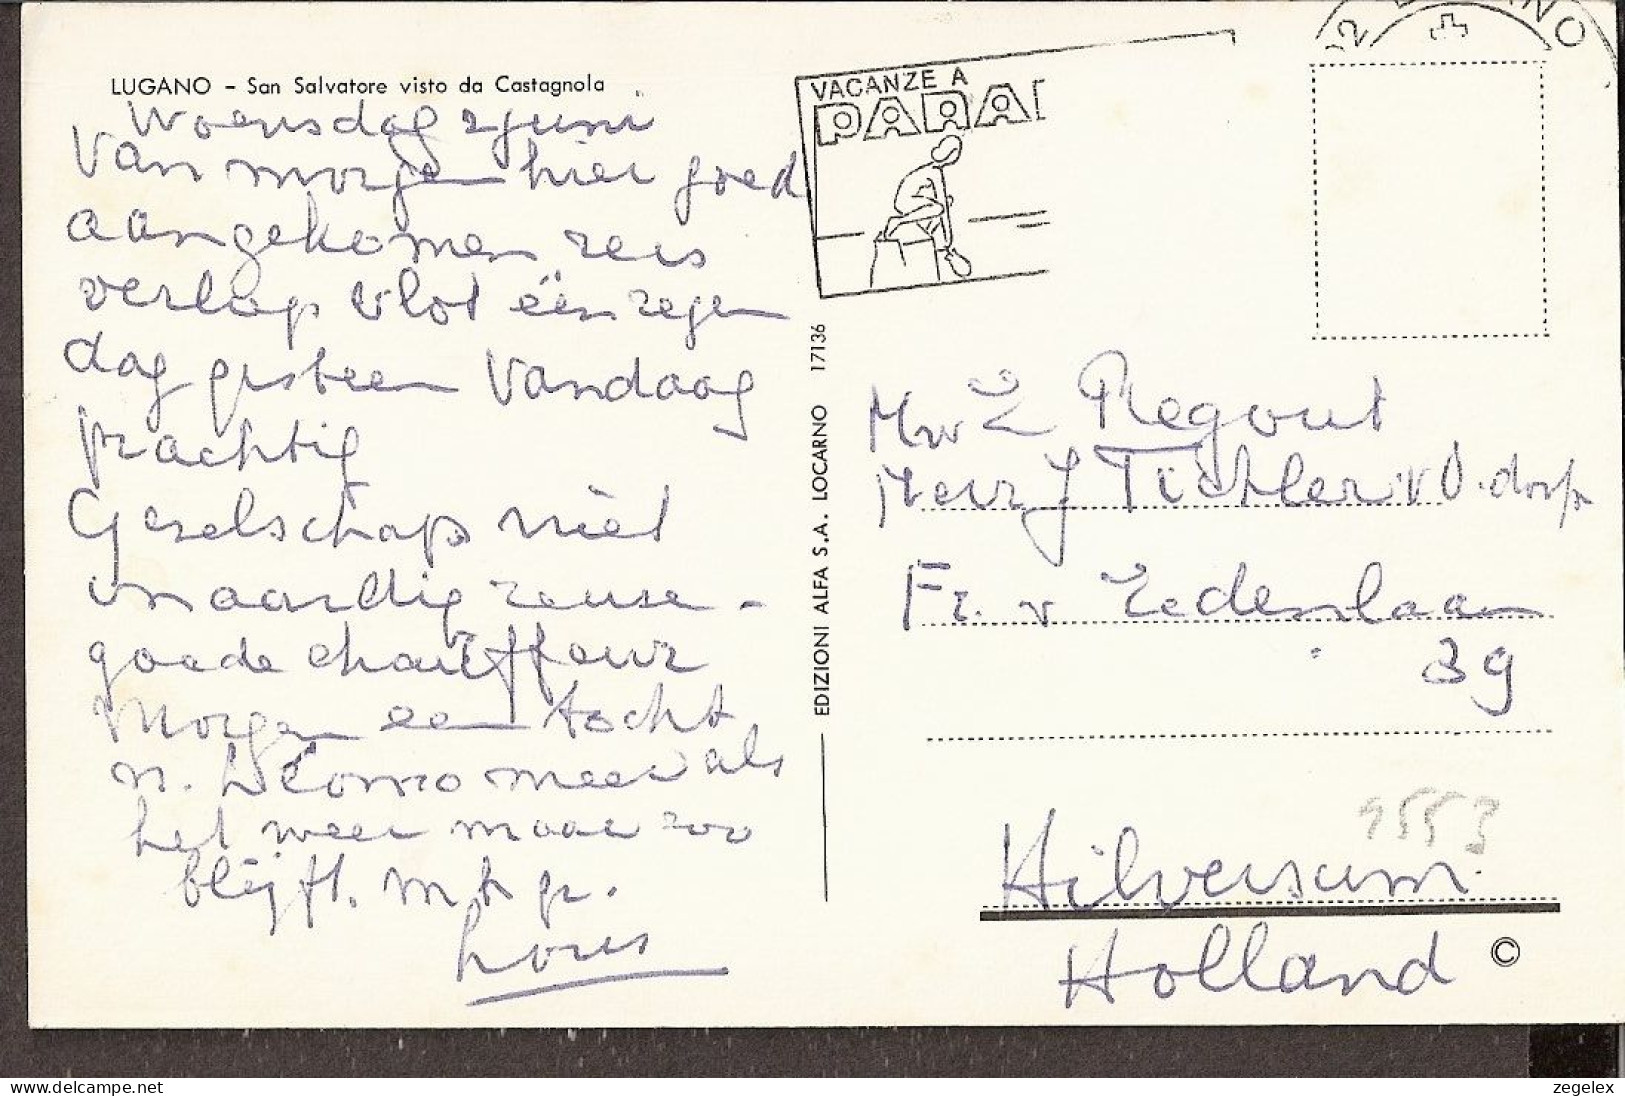 LUGANO - San Salvatore visto da Castagnola
Woensdag 2 juni
Van morgen hier goed
aangekomen reis
verliep vlot één regen
dag gisteren Vandaag
prachtig
Gezelschap niet
onaardig reuse -
goede chauffeur
Morgen een tocht
n. Como meer als
het weer maar zoo
blijft. m h gr.
Louis
VACANZE A
PARA
LUGANO
EDIZIONI ALFA S.A. LOCARNO 17136
Mw Z Regout
Mevr J Tichler v O.dorp
Fr. v Eedenlaan
39
9553
Hilversum
Holland
©
zegelex.com
zegelex